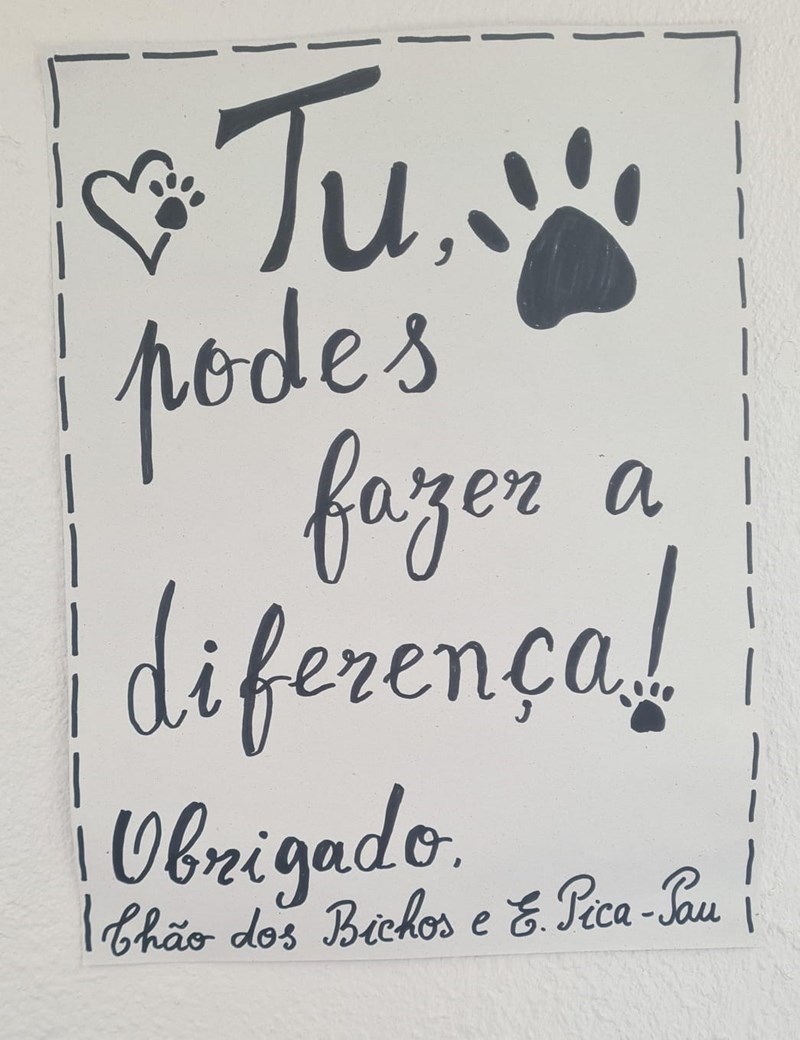 Tu,
podes
fazer a
diferença!
Obrigado.
Chão dos Bichos e E. Pica-Pau